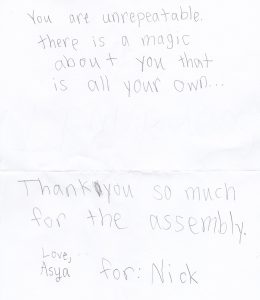 You are unrepeatable.
there is a magic
about you that
is all your own...
Thank you so much
for the assembly.
Love,
Asya
for: Nick